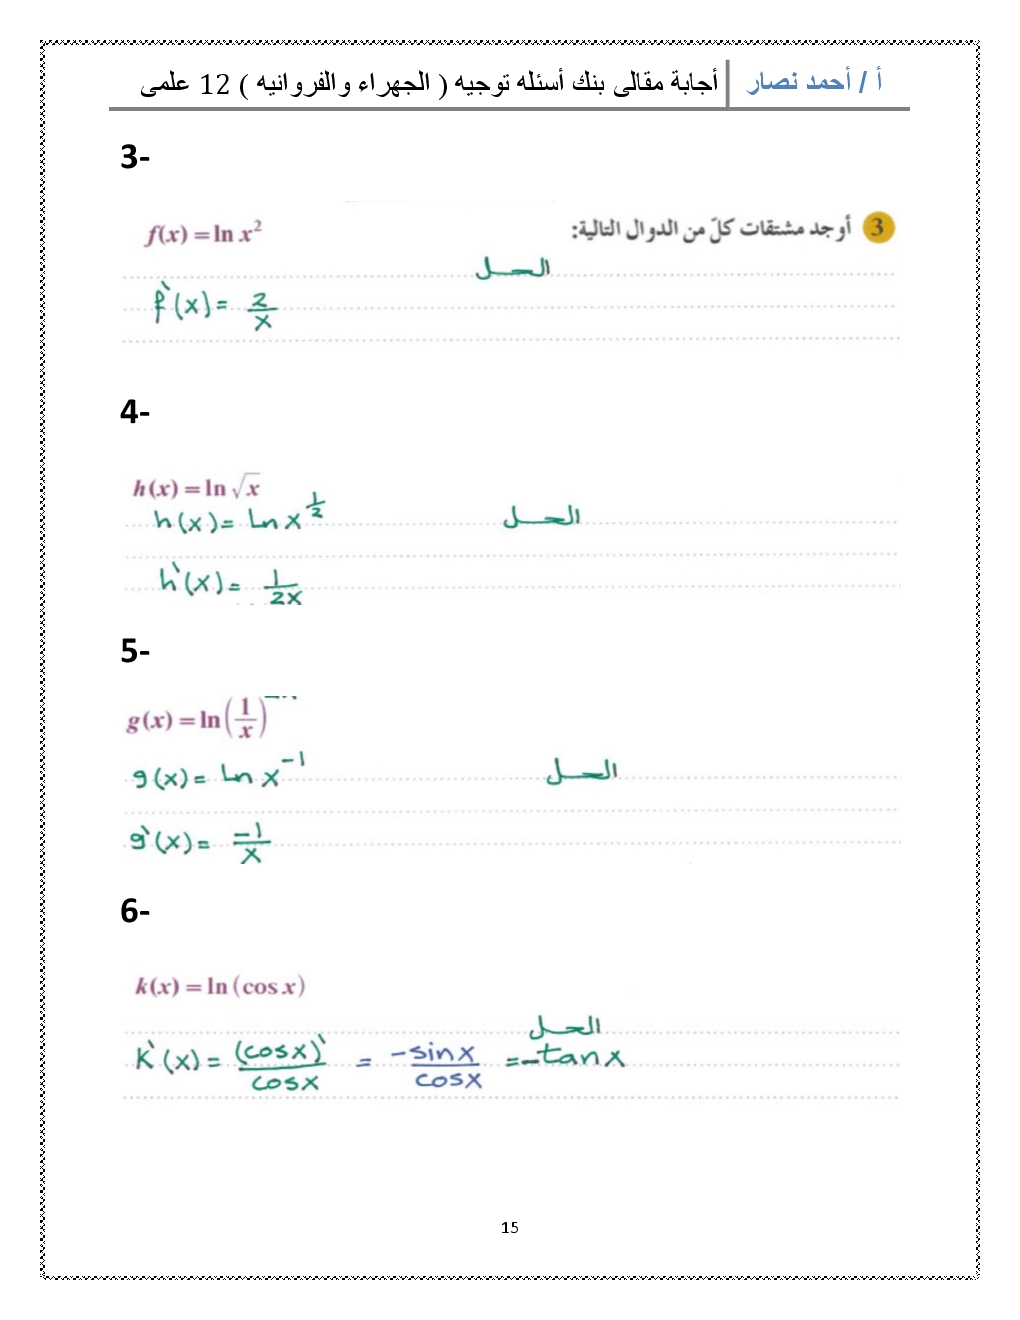 أ / أحمد نصار أجابة مقالى بنك أسئله توجيه ( الجهراء والفروانيه ) 12 علمى
3-
3 أوجد مشتقات كلّ من الدوال التالية: f(x) = ln x²
الحل
f`(x) = 2/x
4-
h(x) = ln √x
h(x) = Ln x^(1/2) الحل
h`(x) = 1/2x
5-
g(x) = ln(1/x)
g(x) = Ln x^-1 الحل
g`(x) = -1/x
6-
k(x) = ln (cos x)
الحل
K`(x) = (cosx)`/cosx = -sinx/cosx = -tanx
15